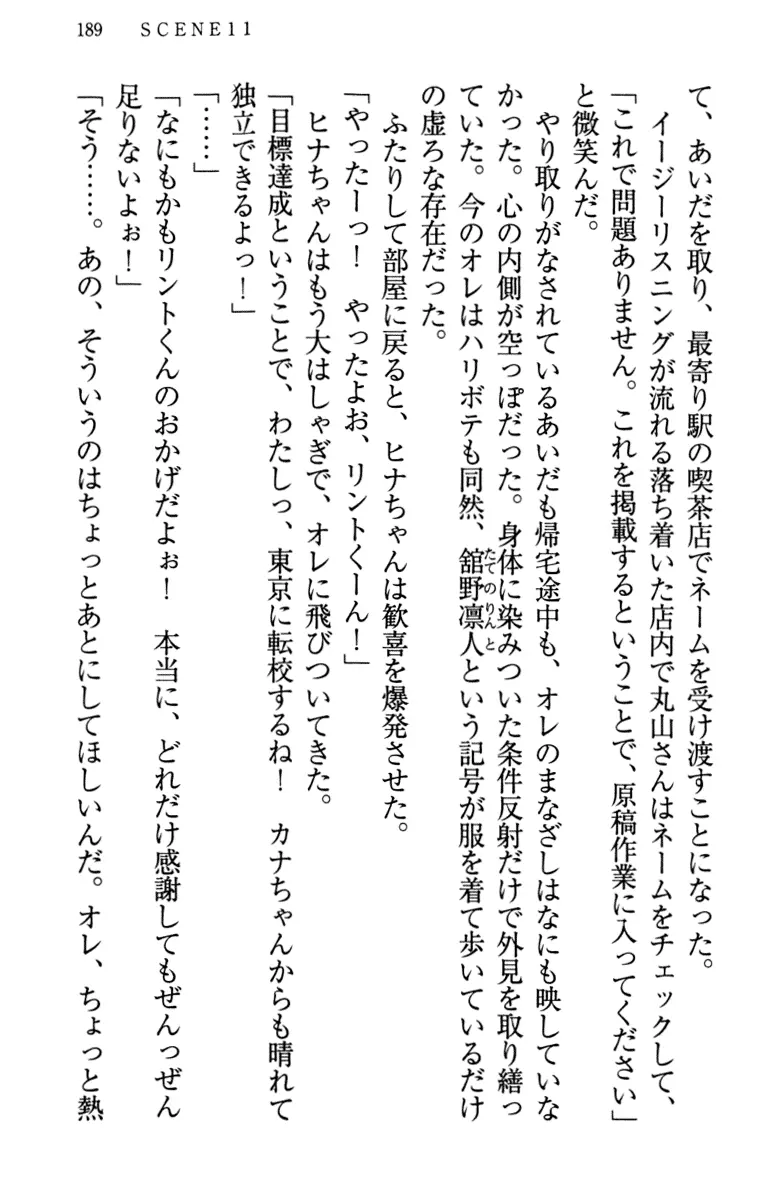 189　SCENE11
て、あいだを取り、最寄り駅の喫茶店でネームを受け渡すことになった。
　イージーリスニングが流れる落ち着いた店内で丸山さんはネームをチェックして、
「これで問題ありません。これを掲載するということで、原稿作業に入ってください」
と微笑んだ。
　やり取りがなされているあいだも帰宅途中も、オレのまなざしはなにも映していな
かった。心の内側が空っぽだった。身体に染みついた条件反射だけで外見を取り繕っ
ていた。今のオレはハリボテも同然、舘野凛人という記号が服を着て歩いているだけ
たてのりんと
の虚ろな存在だった。
　ふたりして部屋に戻ると、ヒナちゃんは歓喜を爆発させた。
「やったーっ！　やったよお、リントくーん！」
　ヒナちゃんはもう大はしゃぎで、オレに飛びついてきた。
「目標達成ということで、わたしっ、東京に転校するね！　カナちゃんからも晴れて
独立できるよっ！」
「……」
「なにもかもリントくんのおかげだよぉ！　本当に、どれだけ感謝してもぜんっぜん
足りないよぉ！」
「そう……。あの、そういうのはちょっとあとにしてほしいんだ。オレ、ちょっと熱